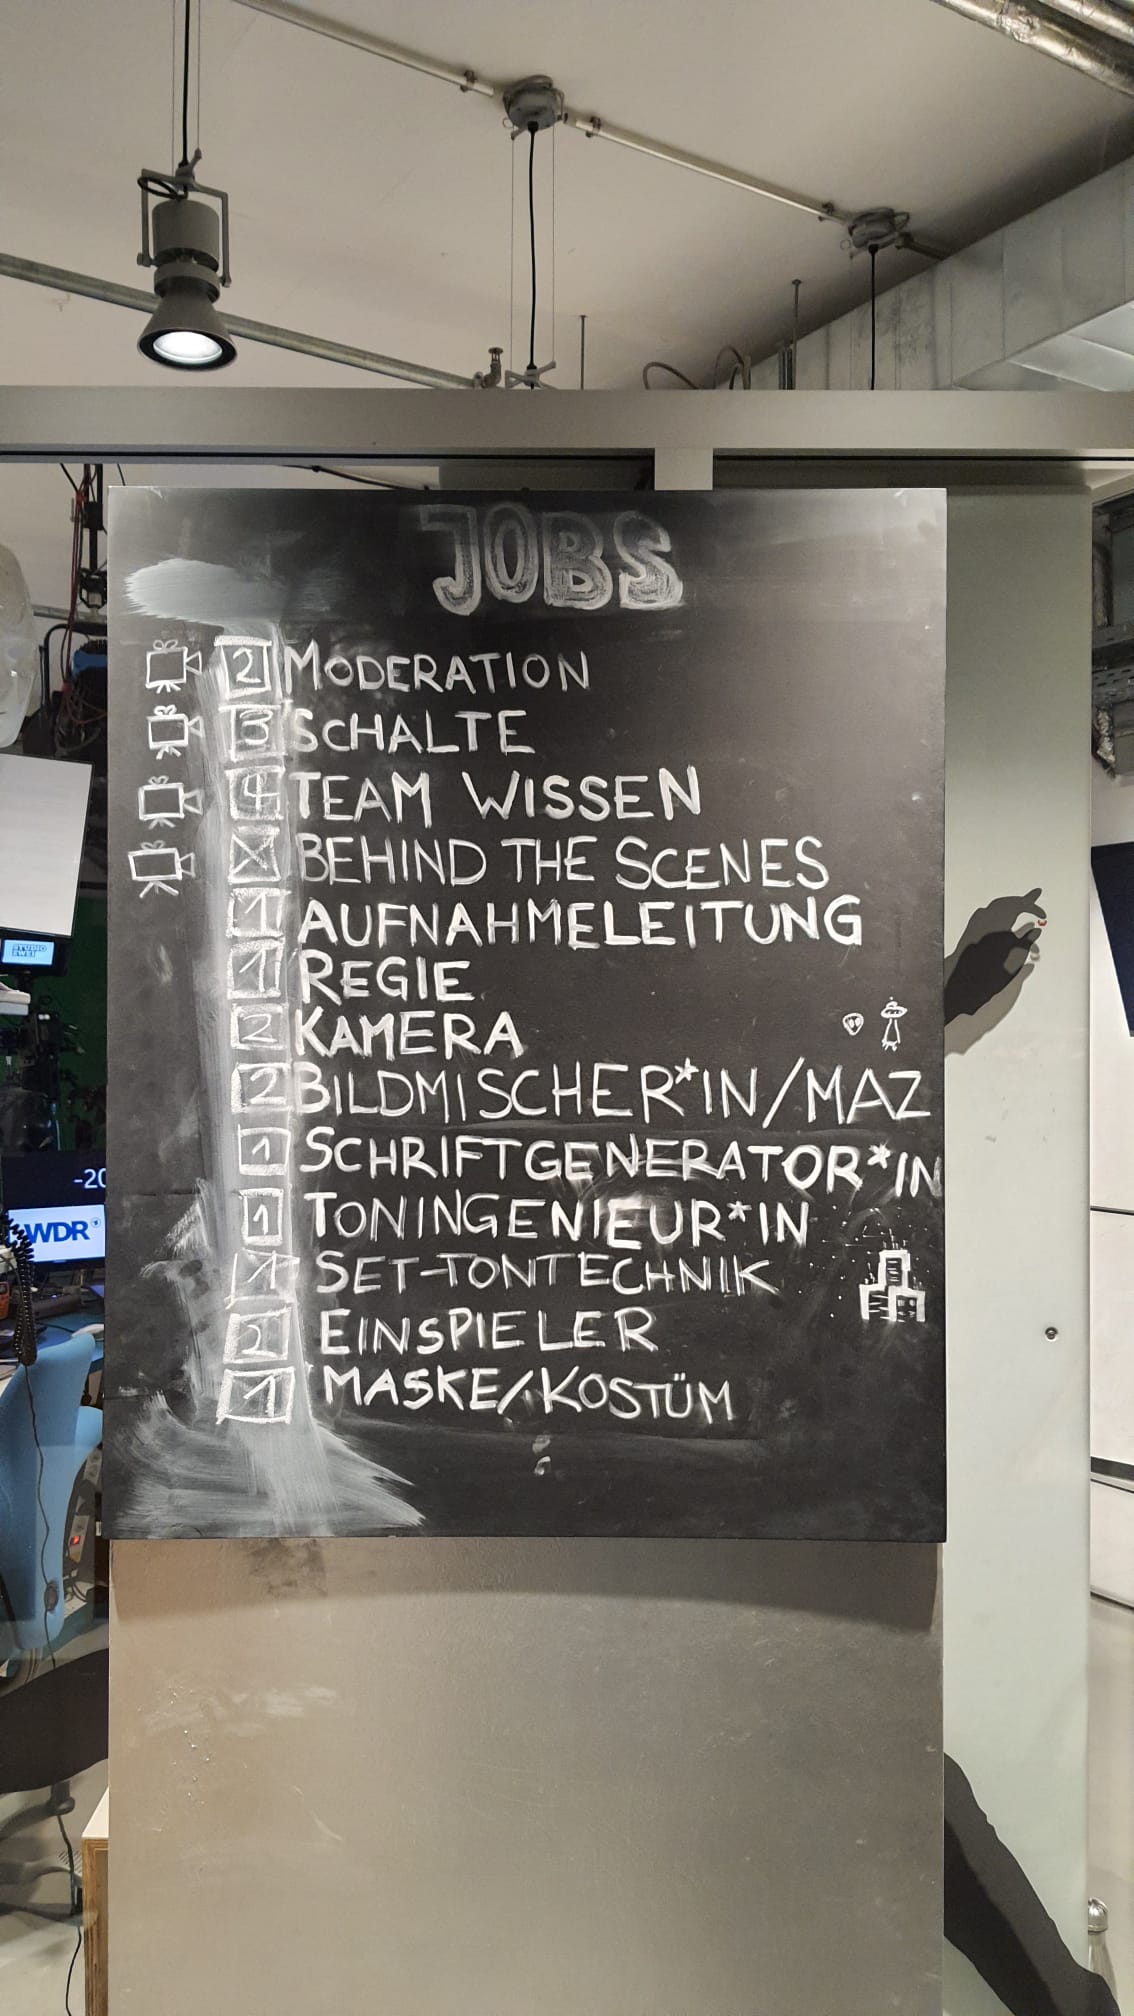 JOBS
2 MODERATION
3 SCHALTE
4 TEAM WISSEN
X BEHIND THE SCENES
1 AUFNAHMELEITUNG
1 REGIE
2 KAMERA
2 BILDMISCHER*IN/MAZ
1 SCHRIFTGENERATOR*IN
1 TONINGENIEUR*IN
1 SET-TONTECHNIK
2 EINSPIELER
1 MASKE/KOSTÜM
STUDIO
ZWEI
-20
WDR